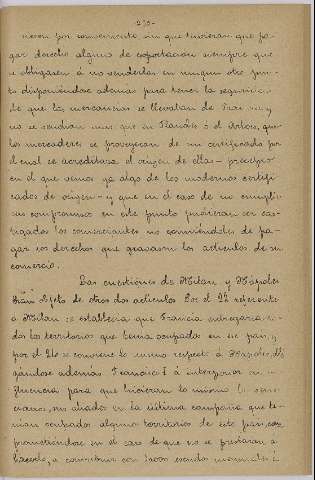 -230-
nesen por convenientes sin que tuvieran que pa-
gar derecho alguno de exportación siempre que
se obligasen á no venderlas en ningun otro pun-
to disponiéndose ademas para tener la seguridad
de que las mercancias se llevaban de
no se vendian mas que en Flandes ó el Artois, que
los mercaderes se proveyeran de un certificado por
el cual se acreditara el origen de ellas- precepto
en el que vemos ya algo de los modernos certifi-
cados de origen- y que en el caso de no cumplir
sus compromisos en este punto pudieran ser cas-
tigados los comerciantes no
gar los derechos que gravasen los articulos de su
comercio.
Las cuestiones de Milan y Nápoles
eran objeto de otros dos articulos Por el 22 referente
á Milan se establecia que Francia entregaria to-
dos los territorios que tenia ocupados en ese pais, y
por el 26 se conviene lo mismo respecto á Nápoles, obli
gándose ademas Francisco I á interponer su in-
fluencia para que hicieran lo mismo los vene-
cianos, sus aliados en la última campaña que te-
nian ocupados algunos territorios de este pais, com
prometiéndose en el caso de que no se prestaran a
hacerlo, a contribuir con escudos mensuales á